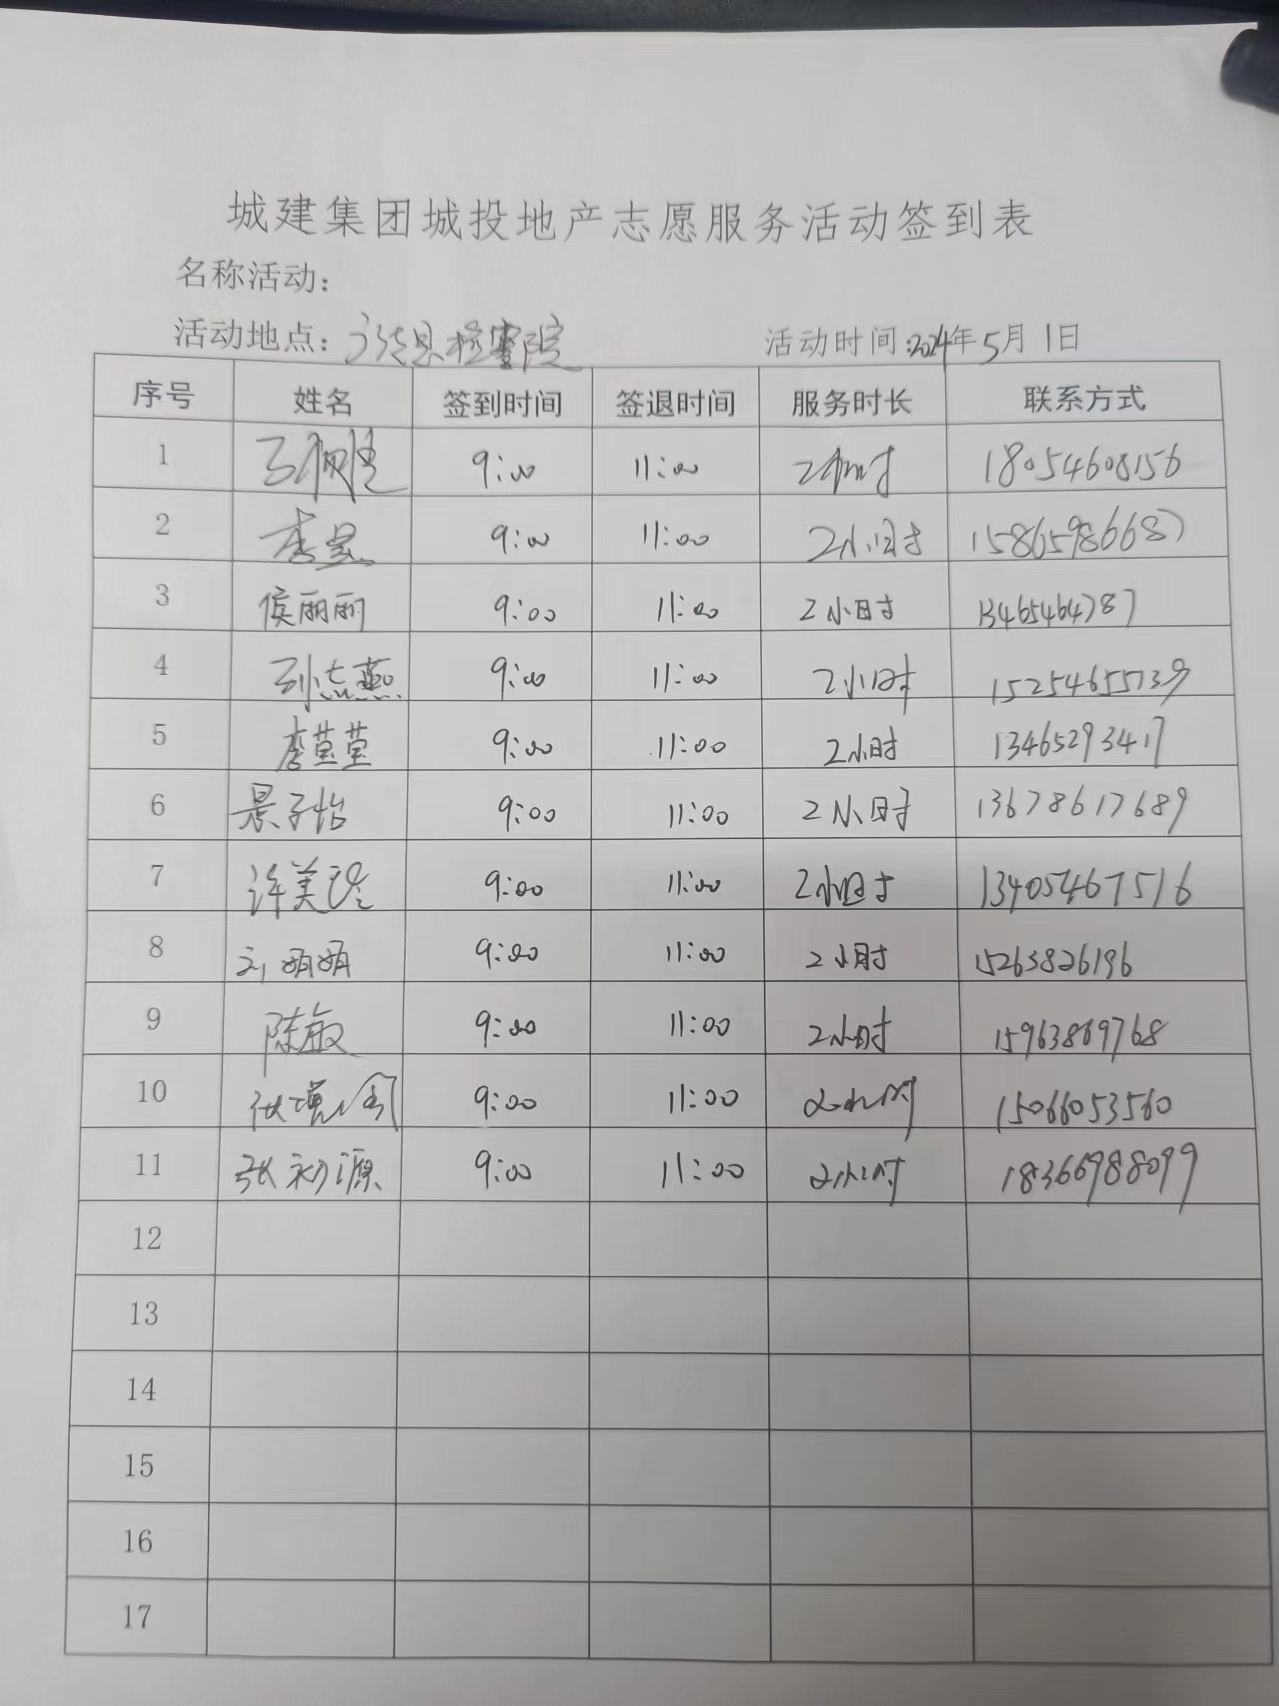 城建集团城投地产志愿服务活动签到表
名称活动：
活动地点：检察院 活动时间:2024年5月1日
序号 姓名 签到时间 签退时间 服务时长 联系方式
1 9:00 11:00 2小时 18054608156
2 李昊 9:00 11:00 2小时 15865986687
3 侯丽丽 9:00 11:00 2小时 13465464787
4 孙志燕 9:00 11:00 2小时 15254655739
5 李莹莹 9:00 11:00 2小时 13465293417
6 景子怡 9:00 11:00 2小时 13678617689
7 许美玲 9:00 11:00 2小时 13405467516
8 刘娟娟 9:00 11:00 2小时 15263826196
9 陈敏 9:00 11:00 2小时 15963869768
10 9:00 11:00 2小时 15066053560
11 张初源 9:00 11:00 2小时 18366988099
12
13
14
15
16
17